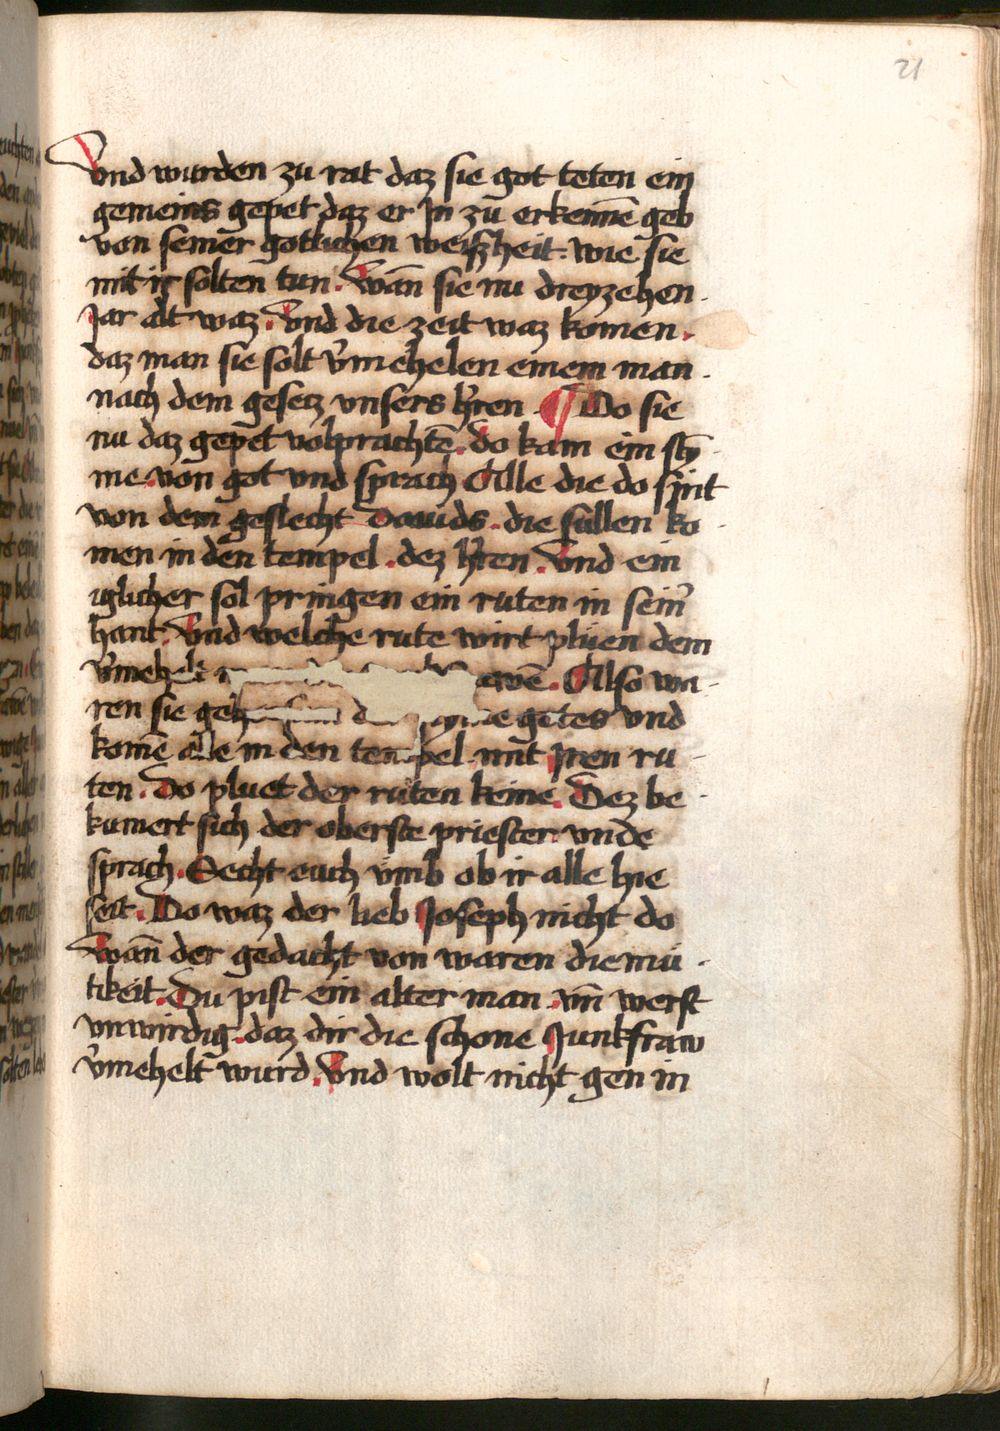 21
Vnd wurden zu rat daz sie got teten ein
gemeins gepet daz er Jn zu erkennē geb
von seiner gotlichen weisheit: wie sie
mit ir solten tun. Wañ sie nu dreyzehen.
Jar alt waz. Vnd die zeit waz komen.
daz man sie solt v̄mehelen einem man.
nach dem gesecz vnsers hr̄en ¶ Do sie
nu daz gepet volprachtē. do kam ein sty̅
me. von got vnd sprach Alle die do sint
von dem geslecht Dauids. die sullen ko
men in den tempel. dez hr̄en. Vnd ein
iglicher sol pringen ein ruten in sein̄
hant. Vnd welche rute wirt plüen dem
v̄mehelt awē. Also wa
ren sie getes vnd
komē alle in den tempel mit Jren ru
ten. Do pluet der ruten keine. Dez be
kumert sich der oberste priester vnde
sprach. Secht euch v̈mb ob ir alle hie
seit. Do waz der lieb Joseph nicht do
Wañ der gedacht von waren diemü
tikeit. Du pist ein alter man. vñ werst
vnwirdig. daz dir die schone Junkfraw
v̄mehelt wurd. Vnd wolt nicht gen in